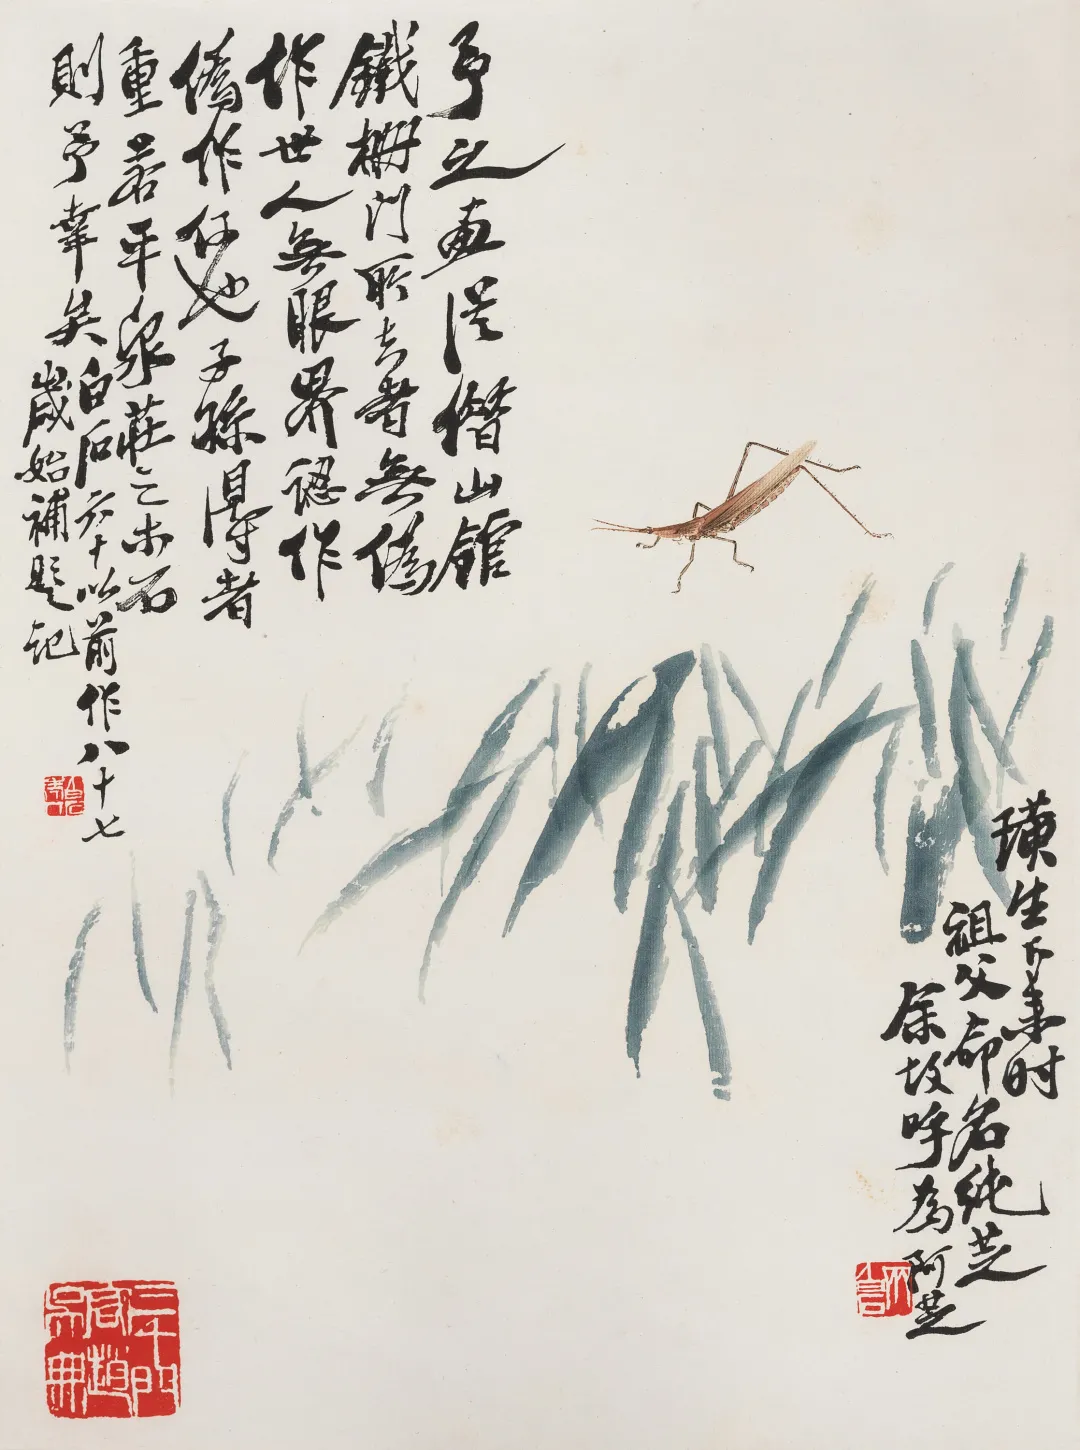 予之画從借山館
鐵柵門所去者無偽
作世人無眼界認作
偽作何也子孫得者
重若平泉莊之木石
則予幸矣
白石六十以前作八十七
歲始補題記
璜生下来时
祖父命名純芝
余故呼為阿芝
三千門客趙吳無